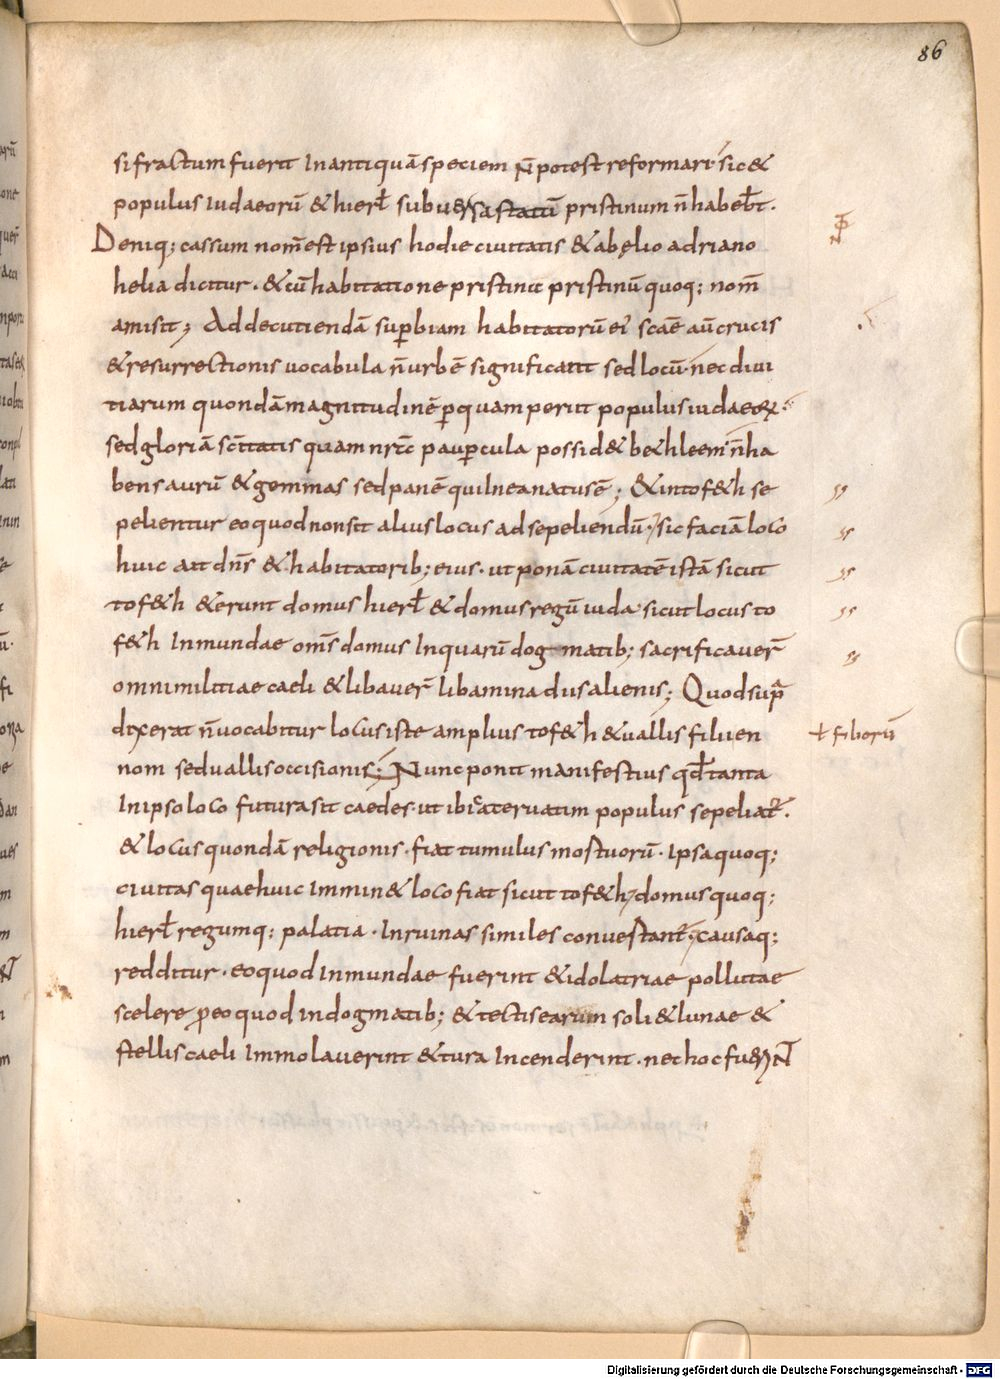 86
si fractum fuerit In antiquā speciem n̄ potest reformari sic &
populus iudaeorū & hierł subuersa statū pristinum n̄ habebt̄.
Deniq; cassum nom̄ est ipsius hodie ciuitatis & ab ęlio adriano
helia dicitur. & cū habitatione pristini pristinū quoq; nom̄
amisit; Ad decutiendā supbiam habitatorū ei' scāe aū crucis
& resurrectionis uocabula n̄ urbē significant sed locū nec diui
tiarum quondā magnitudinē p quam periit populus iudaeor
sed gloriā scītatis quam nr̄c paupcula possid& bethleem n̄ ha
bens aurū & gemmas sed panē qui Inea natus ē; & in tof&h se
pelientur eo quod non sit alius locus ad sepeliendū. sic faciā loco
huic ait dn̄s & habitatorib; eius. ut ponā ciuitatē istā sicut
tof&h & erunt domus hierł & domus regū iuda sicut locus to
f&h Inmundae om̄s domus In quarū dogmatib; sacrificauer̄
omni militiae caeli & libauer̄ libamina dus alienis; Quod supra
dixerat n̄ uocabitur locus iste amplius tof&h & uallis filii en
ł fiborū
nom sed uallis occisionis; Nunc ponit manifestius qđ tanta
In ipso loco futura sit caedes. ut ibi cateruatim populus sepeliat.
& locus quondā religionis. fiat tumulus mostuorū. Ipsa quoq;
ciuitas quae huic Immin& loco fiat sicut tof&h domus quoq;
hierł regumq; palatia. In ruinas similes conuestant. causaq;
redditur. eo quod Inmundae fuerint & idolatriae pollutae
scelere p eo quod In dogmatib; & tectis earum soli & lunae &
stellis caeli Immolauerint & tura Incenderint. nec hoc fuer NT
Digitalisierung gefördert durch die Deutsche Forschungsgemeinschaft - DFG